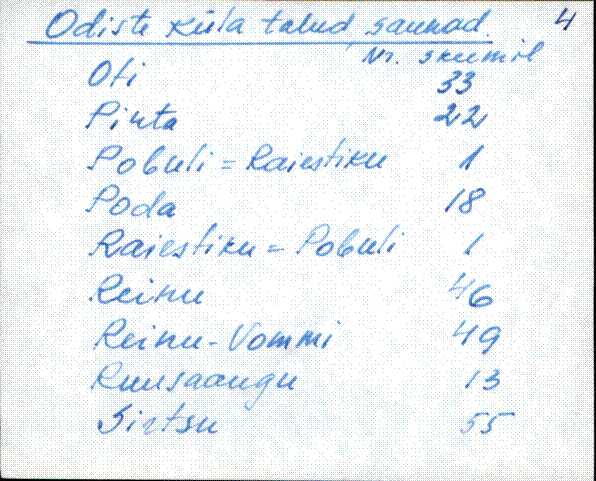 Odiste küla talud, saunad. 4
Nr. skeemil
Oti 33
Pinta 22
Pobuli = Raiestiku 1
Poda 18
Raiestiku = Pobuli 1
Reinu 46
Reinu-Vommi 49
Ruusaaugu 13
Sirtsu 55